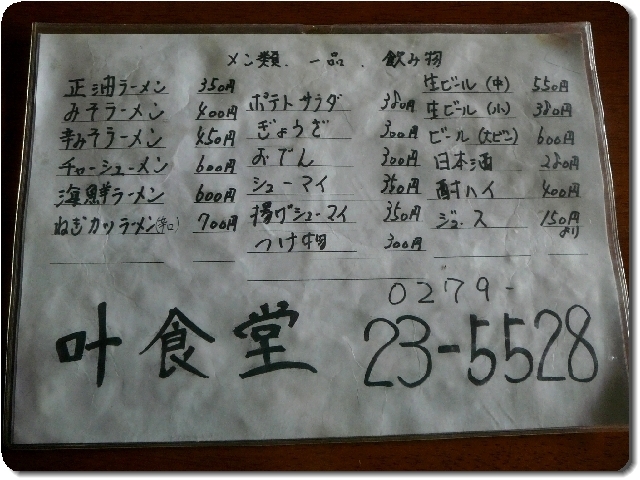 メン類、一品、飲み物
正油ラーメン 350円
みそラーメン 400円
辛みそラーメン 450円
チャーシューメン 600円
海鮮ラーメン 600円
ねぎカツラーメン(辛口) 700円
ポテトサラダ 380円
ぎょうざ 300円
おでん 300円
シューマイ 350円
揚げシューマイ 350円
つけ物 300円
生ビール(中) 550円
生ビール(小) 380円
ビール(大ビン) 600円
日本酒 280円
酎ハイ 400円
ジュース 150円より
0279-
叶食堂 23-5528